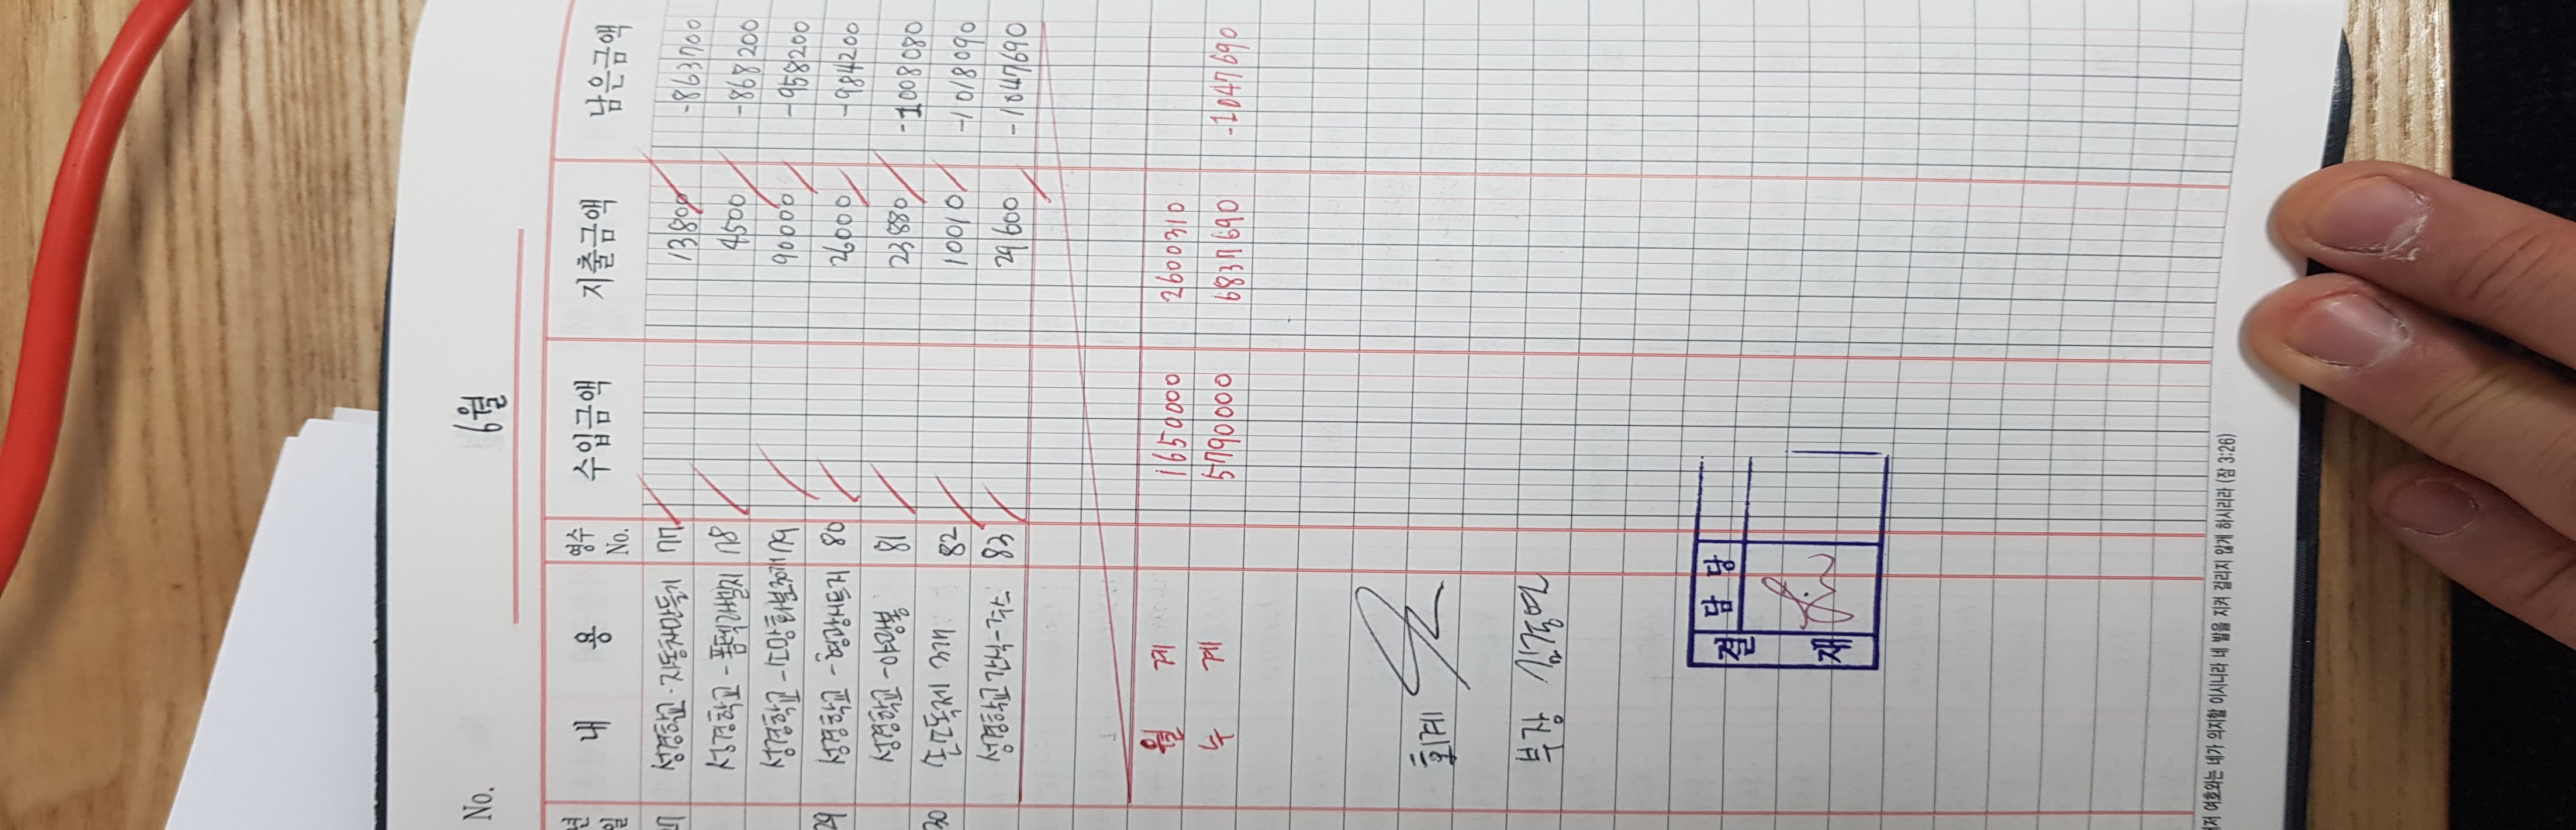 No. 6월
년 일 내 용 영수 No. 수입금액 지출금액 남은금액
성경학교 - 자동차만들기 77 13800 -863700
성경학교 - 폼텍라벨지 78 4500 -868200
성경학교 - 79 90000 -958200
29 성경학교 - 80 26000 -984200
성경학교 - 81 23880 -1008080
30 82 10010 -1018090
성경학교 83 29600 -1047690
월 계 1650000 2600310
누 계 5790000 6837690 -1047690
회계
부장
결 재 담 당
여호와는 네가 의지할 이시니라 네 발을 지켜 걸리지 않게 하시리라 (잠 3:26)